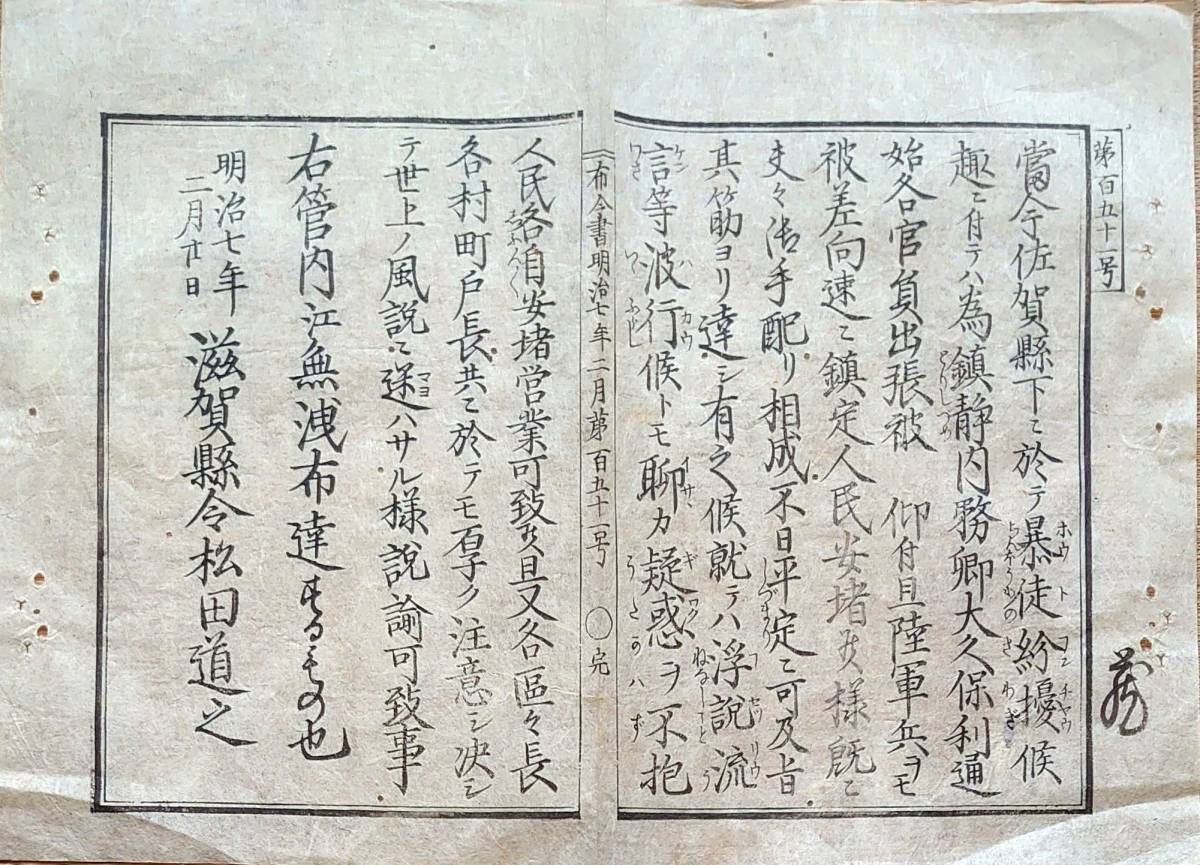 第百五十一号
當今佐賀縣下ニ於テ暴徒紛擾候
趣ニ付テハ為鎮静内務卿大久保利通
始各官員出張被　仰付且陸軍兵ヲモ
被差向速ニ鎮定人民安堵候様既ニ
夫々御手配リ相成不日平定ニ可及旨
其筋ヨリ達シ有之候就テハ浮説流
言等波行候トモ聊カ疑惑ヲ不抱
布令書明治七年二月第百五十一号　〇完
人民各自安堵営業可致候且又各區々長
各村町戸長共ニ於テモ厚ク注意シ决シ
テ世上ノ風説ニ迷ハサル様説諭可致事
右管内江無洩布達するもの也
明治七年
二月廿日　滋賀縣令松田道之